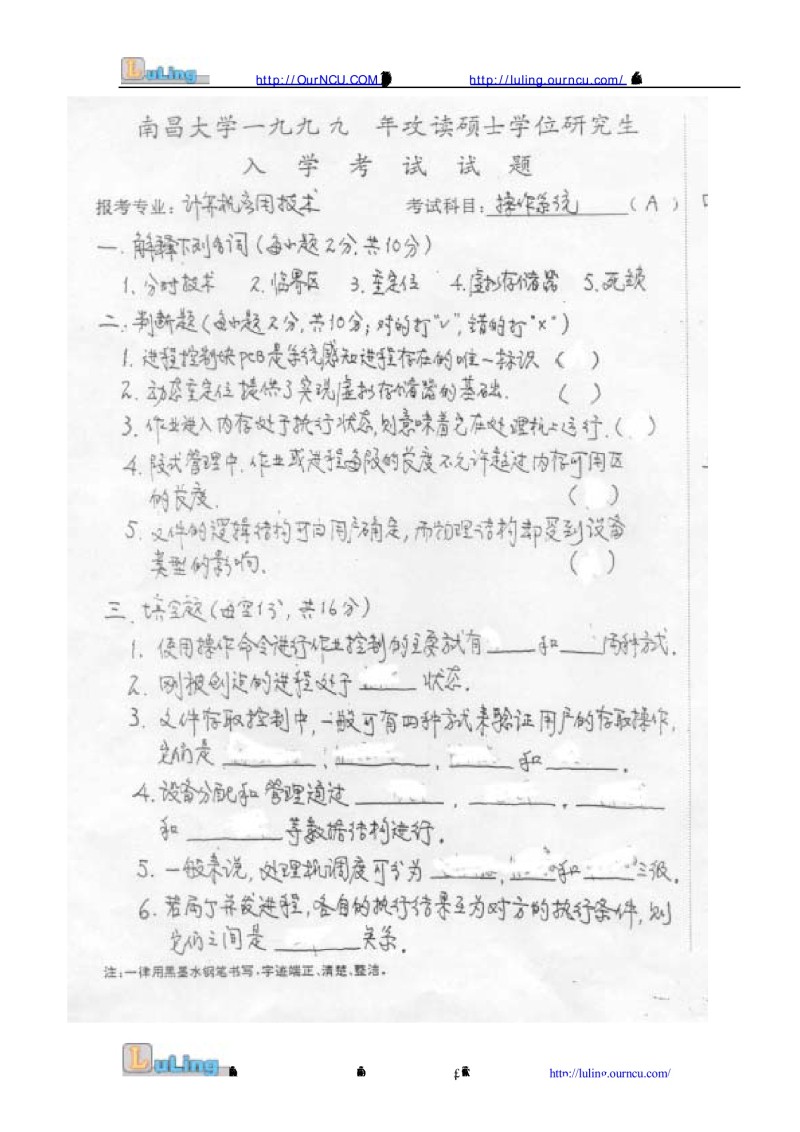 LuLing http://OurNCU.COM http://luling.ourncu.com/
南昌大学一九九九 年攻读硕士学位研究生
入学考试试题
报考专业:计算机应用技术 考试科目:操作系统 (A)
一.解释下列名词(每小题2分,共10分)
1.分时技术 2.临界区 3.重定位 4.虚拟存储器 5.死锁
二.判断题(每小题2分,共10分;对的打"√",错的打"×")
1.进程控制块PCB是系统感知进程存在的唯一标识 ( )
2.动态重定位提供了实现虚拟存储器的基础. ( )
3.作业进入内存处于执行状态,则意味着它在处理机上运行.( )
4.段式管理中.作业或进程每段的长度不允许超过内存可用区
的长度. ( )
5.文件的逻辑结构可由用户确定,而物理结构却受到设备
类型的影响. ( )
三.填空题(每空1分,共16分)
1.使用操作命令进行作业控制的主要方式有____和____两种方式.
2.刚被创建的进程处于____状态.
3.文件存取控制中,一般可有四种方式来验证用户的存取操作,
它们是________,________,________和________.
4.设备分配和管理通过________,________,________
和________等数据结构进行.
5.一般来说,处理机调度可分为________,____和____三级.
6.若两个并发进程,各自的执行结果互为对方的执行条件,则
它们之间是________关系.
注:一律用黑墨水钢笔书写,字迹端正、清楚、整洁。
LuLing http://luling.ourncu.com/